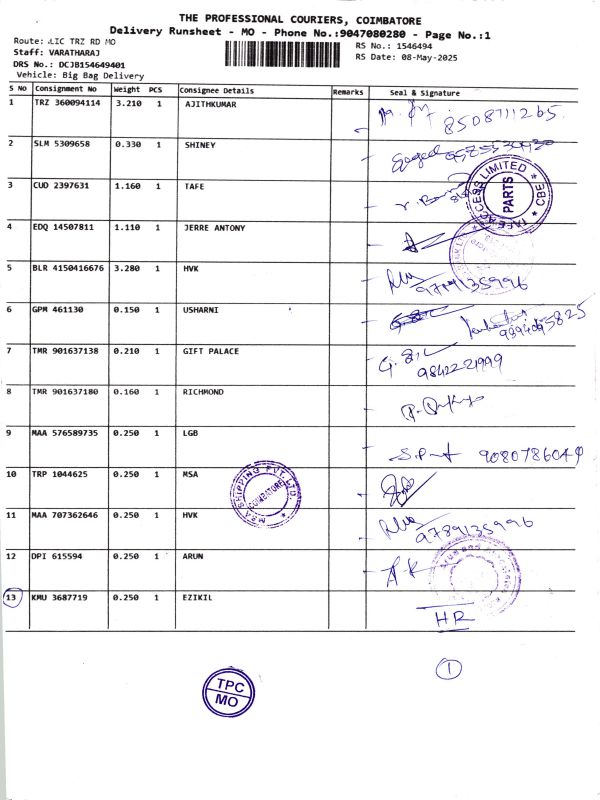 THE PROFESSIONAL COURIERS, COIMBATORE
Delivery Runsheet - MO - Phone No.:9047080280 - Page No.:1
Route: .LIC TRZ RD MO
RS No.: 1546494
Staff: VARATHARAJ
RS Date: 08-May-2025
DRS No.: DCJB154649401
Vehicle: Big Bag Delivery
S No Consignment No Weight PCS Consignee Details Remarks Seal & Signature
1 TRZ 360094114 3.210 1 AJITHKUMAR 8508711265
2 SLM 5309658 0.330 1 SHINEY
3 CUD 2397631 1.160 1 TAFE
ACCESS LIMITED PARTS CBE
4 EDQ 14507811 1.110 1 JERRE ANTONY
5 BLR 4150416676 3.280 1 HVK 9789135996
6 GPM 461130 0.150 1 USHARNI
7 TMR 901637138 0.210 1 GIFT PALACE 9842221999
8 TMR 901637180 0.160 1 RICHMOND
9 MAA 576589735 0.250 1 LGB 9080786049
10 TRP 1044625 0.250 1 MSA
SHIPPING PVT. LTD. COIMBATORE
11 MAA 707362646 0.250 1 HVK 9789135996
12 DPI 615594 0.250 1 ARUN A-K
13 KMU 3687719 0.250 1 EZIKIL HR
1
TPC
MO